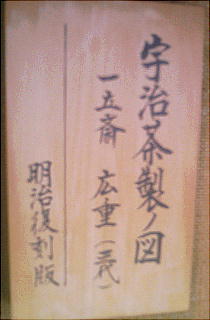 宇治茶製ノ図
一立斎 広重(三代)
明治復刻版